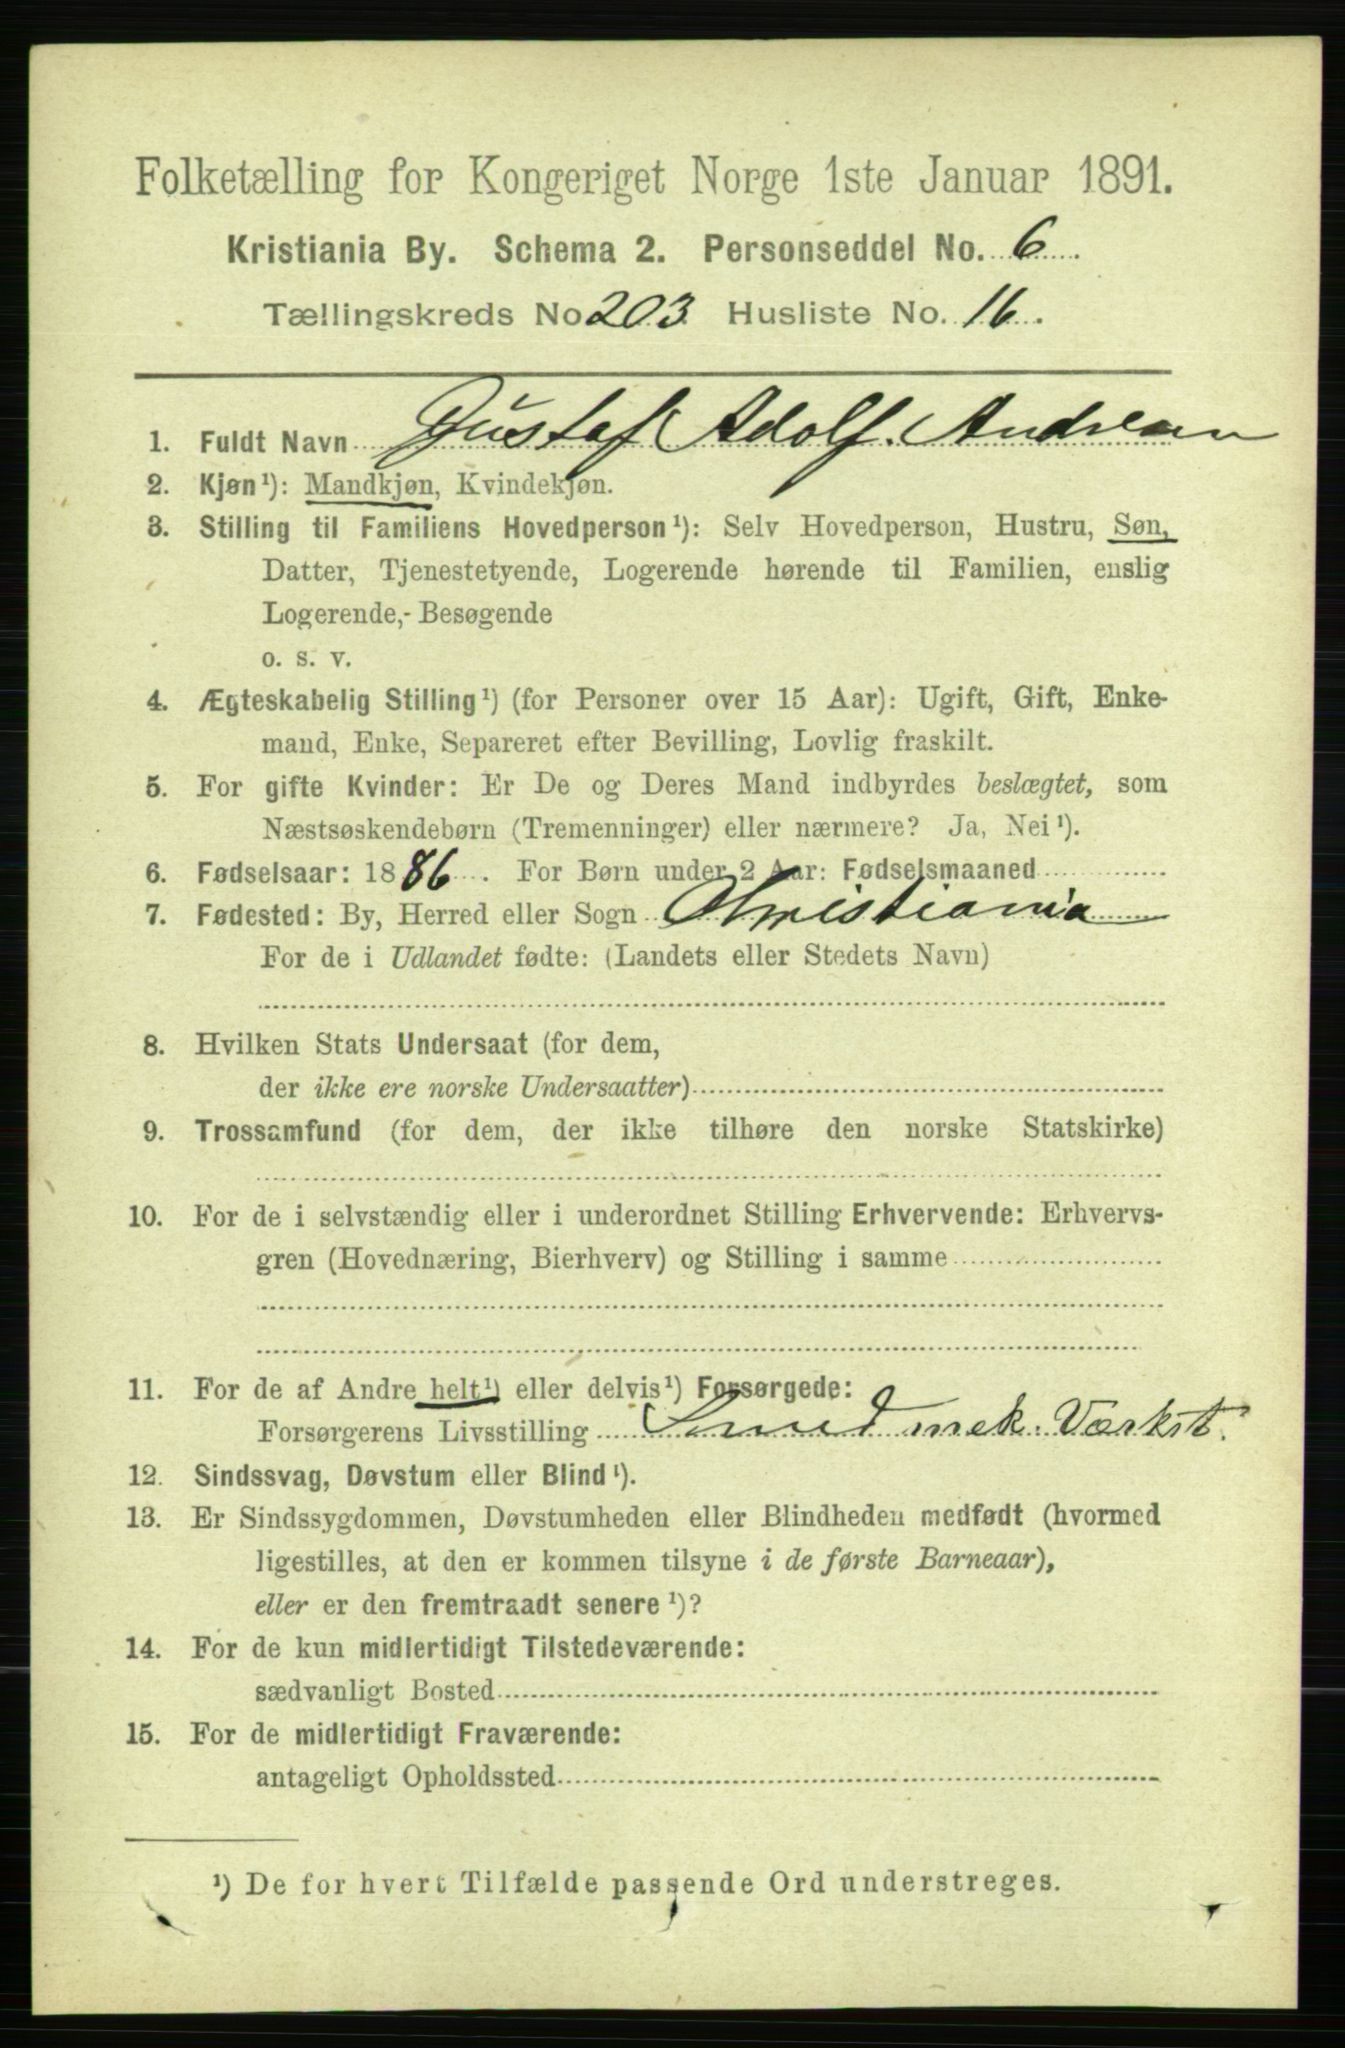 Folketælling for Kongeriget Norge 1ste Januar 1891.
Kristiania By. Schema 2. Personseddel No. 6
Tællingskreds No 203 Husliste No. 16.
1. Fuldt Navn Gustaf Adolf Andresen
2. Kjøn¹): Mandkjøn, Kvindekjøn.
3. Stilling til Familiens Hovedperson¹): Selv Hovedperson, Hustru, Søn,
Datter, Tjenestetyende, Logerende hørende til Familien, enslig
Logerende,- Besøgende
o. s. v.
4. Ægteskabelig Stilling¹) (for Personer over 15 Aar): Ugift, Gift, Enke-
mand, Enke, Separeret efter Bevilling, Lovlig fraskilt.
5. For gifte Kvinder: Er De og Deres Mand indbyrdes beslægtet, som
Næstsøskendebørn (Tremenninger) eller nærmere? Ja, Nei¹).
6. Fødselsaar: 1886. For Børn under 2 Aar: Fødselsmaaned
7. Fødested: By, Herred eller Sogn Christiania
For de i Udlandet fødte: (Landets eller Stedets Navn)
8. Hvilken Stats Undersaat (for dem,
der ikke ere norske Undersaatter)
9. Trossamfund (for dem, der ikke tilhøre den norske Statskirke)
10. For de i selvstændig eller i underordnet Stilling Erhvervende: Erhvervs-
gren (Hovednæring, Bierhverv) og Stilling i samme
11. For de af Andre helt¹) eller delvis¹) Forsørgede:
Forsørgerens Livsstilling Smed mek. Værkst.
12. Sindssvag, Døvstum eller Blind¹).
13. Er Sindssygdommen, Døvstumheden eller Blindheden medfødt (hvormed
ligestilles, at den er kommen tilsyne i de første Barneaar),
eller er den fremtraadt senere¹)?
14. For de kun midlertidigt Tilstedeværende:
sædvanligt Bosted
15. For de midlertidigt Fraværende:
antageligt Opholdssted
¹) De for hvert Tilfælde passende Ord understreges.